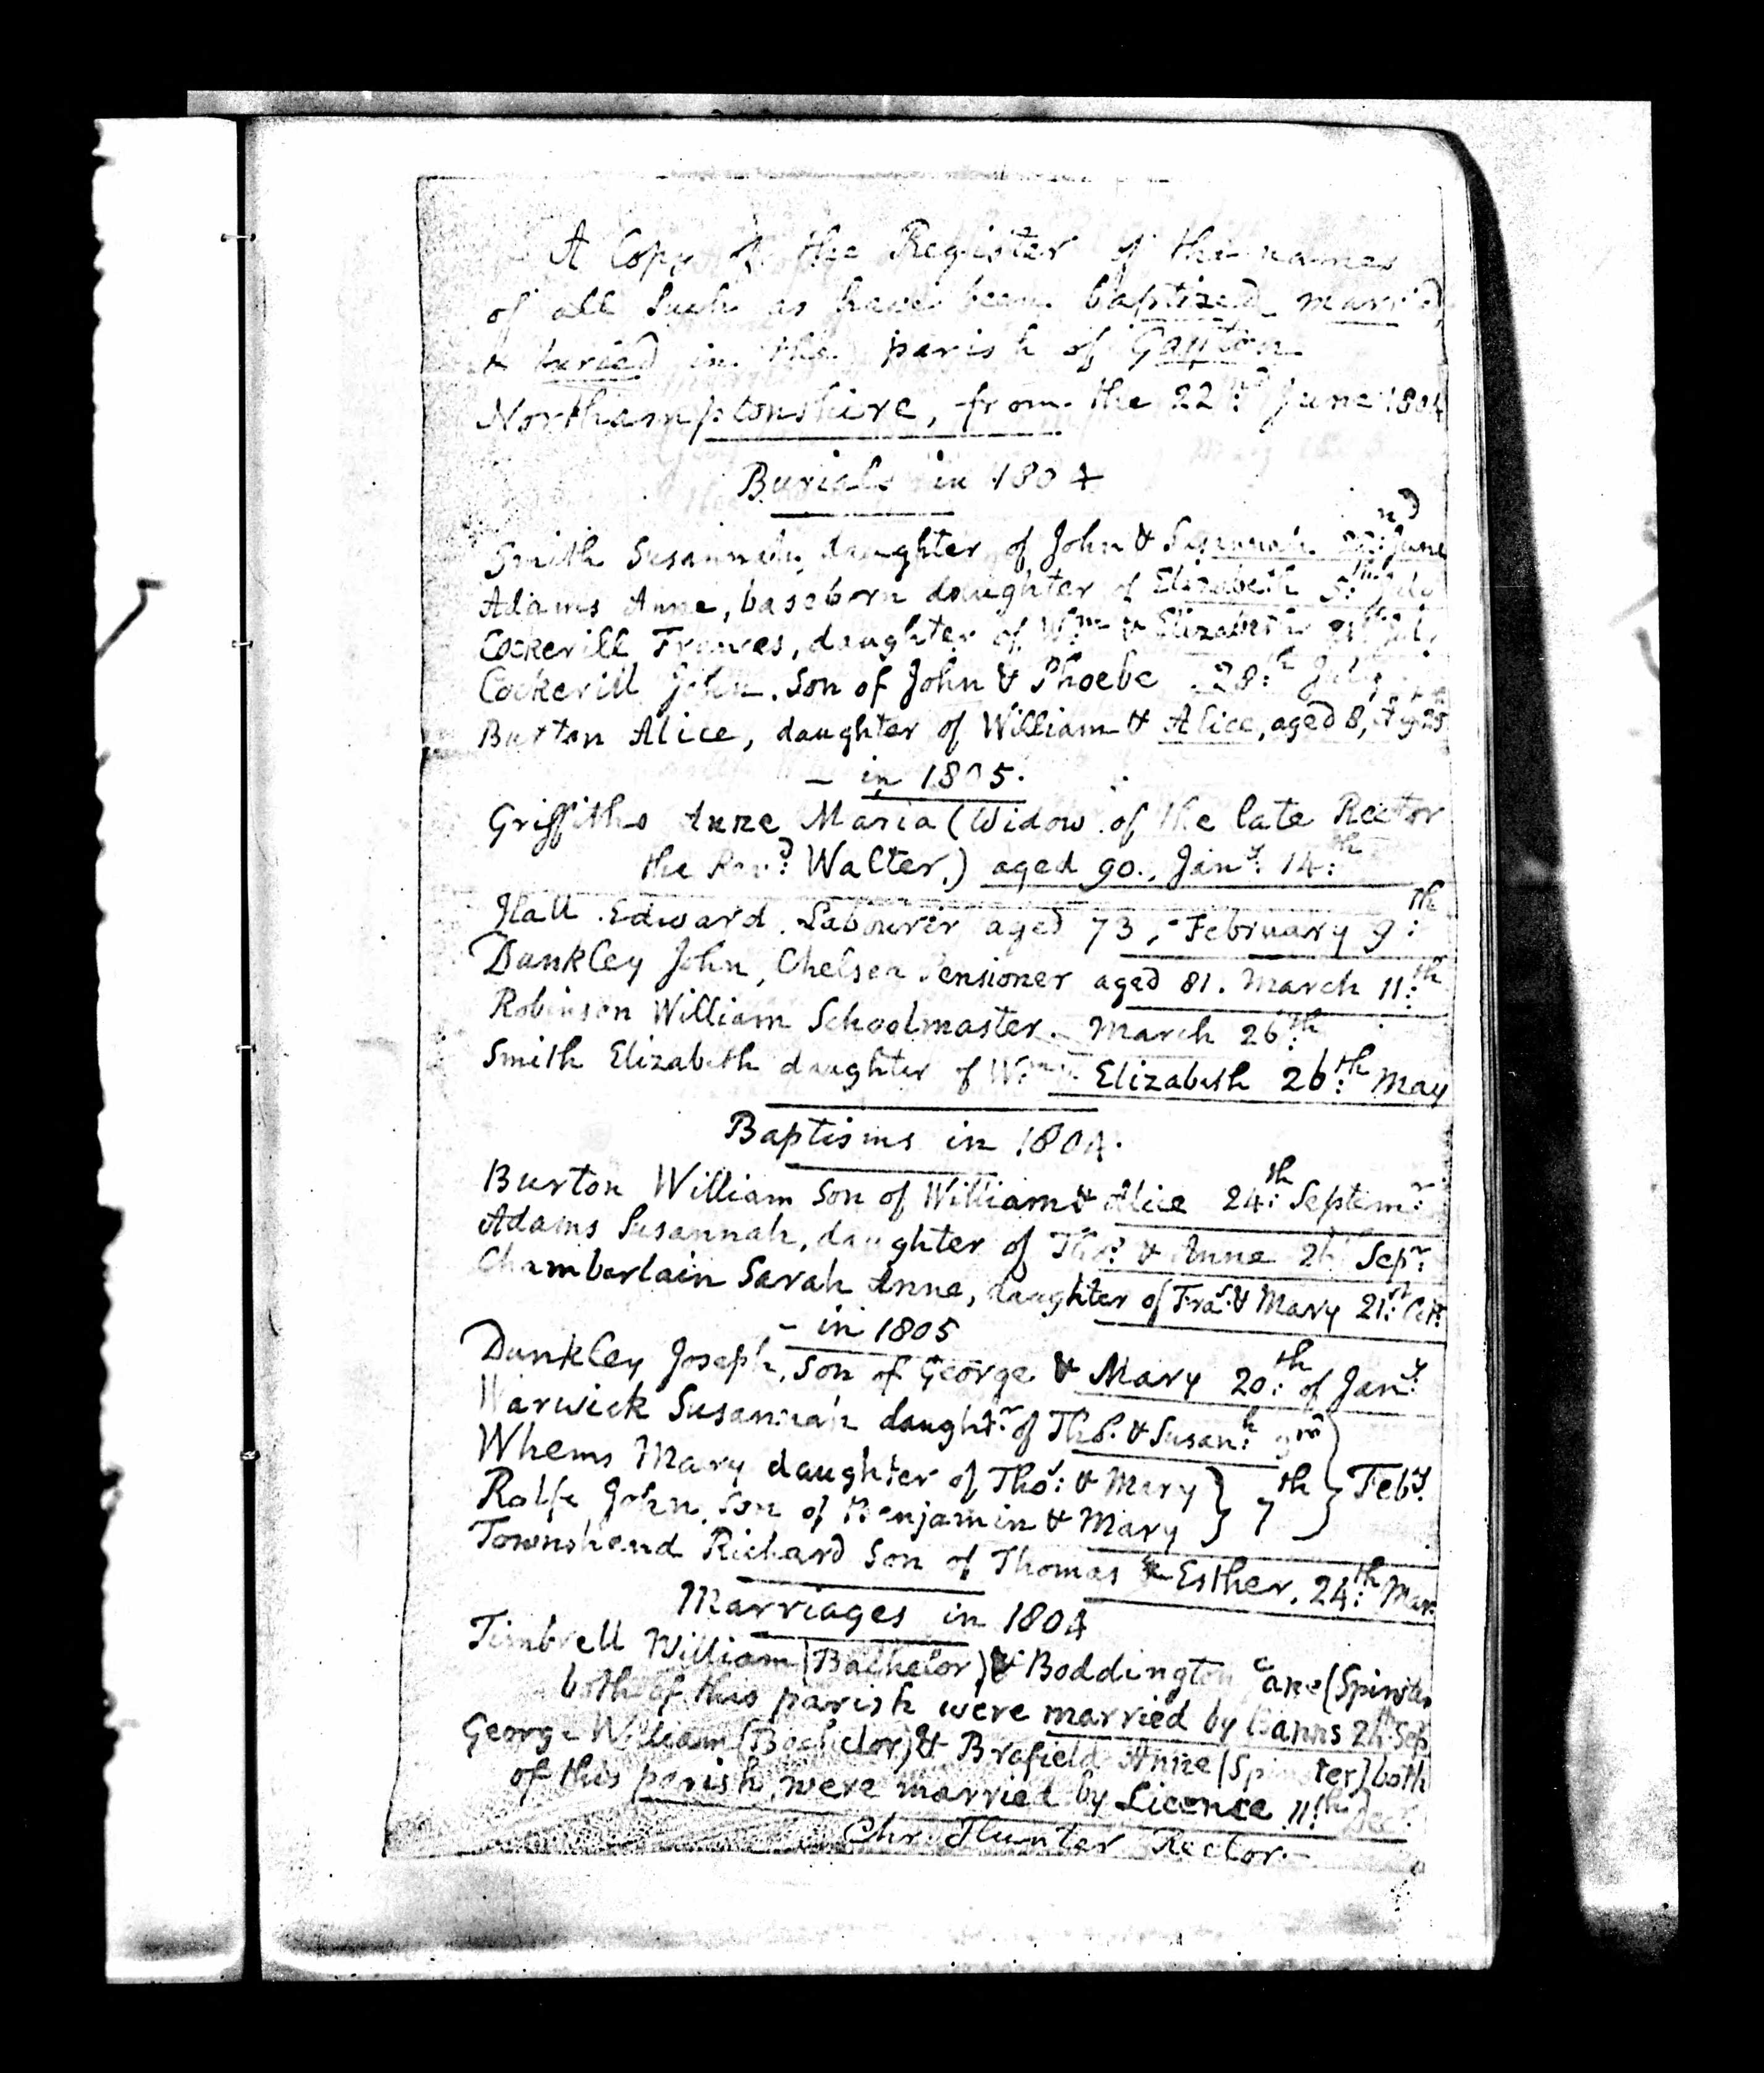 A Copy of the Register of the names
of all Such as have been baptized marri'd
& buried in the parish of Gayton
Northamptonshire, from the 22nd: June 1804
Burials in 1804
Smith Susannah, daughter of John & Susannah 22nd: June
Adams Anne, baseborn daughter of Elizabeth 5th: July
Cockerill Frances, daughter of Wm: & Elizabeth July
Cockerill John, Son of John & Phoebe 28:th July
Burton Alice, daughter of William & Alice, aged 8, Aug 25
– in 1805.
Griffiths Anne Maria (Widow of the late Rector
the Revd: Walter,) aged 90., Jany: 14:th
Hall Edward Labourer aged 73, - February 9:th
Dunkley John, Chelsea Pensioner aged 81. March 11:th
Robinson William Schoolmaster. March 26:th
Smith Elizabeth daughter of Wm: & Elizabeth 26:th May
Baptisms in 1804.
Burton William Son of William & Alice 24:th Septemr:
Adams Susannah, daughter of Thos: & Anne Sepr
Chamberlain Sarah Anne, daughter of Fras: & Mary 21:st Oct:
– in 1805
Dunkley Joseph, Son of George & Mary 20:th of Jany:
Warwick Susannah daughtr: of Thos: & Susanh:
Whems Mary daughter of Thos: & Mary } 7th } Feby.
Rolfe John, Son of Benjamin & Mary }
Townshend Richard Son of Thomas & Esther, 24:th Mar:
Marriages in 1804
Timbrell William (Bachelor) & Boddington Jane (Spinster
both of this parish were married by Banns Sep
George William (Bachelor) & Brafield Anne (Spinster) both
of this parish, were married by Licence 11:th Decr:
Chr. Hunter Rector.–